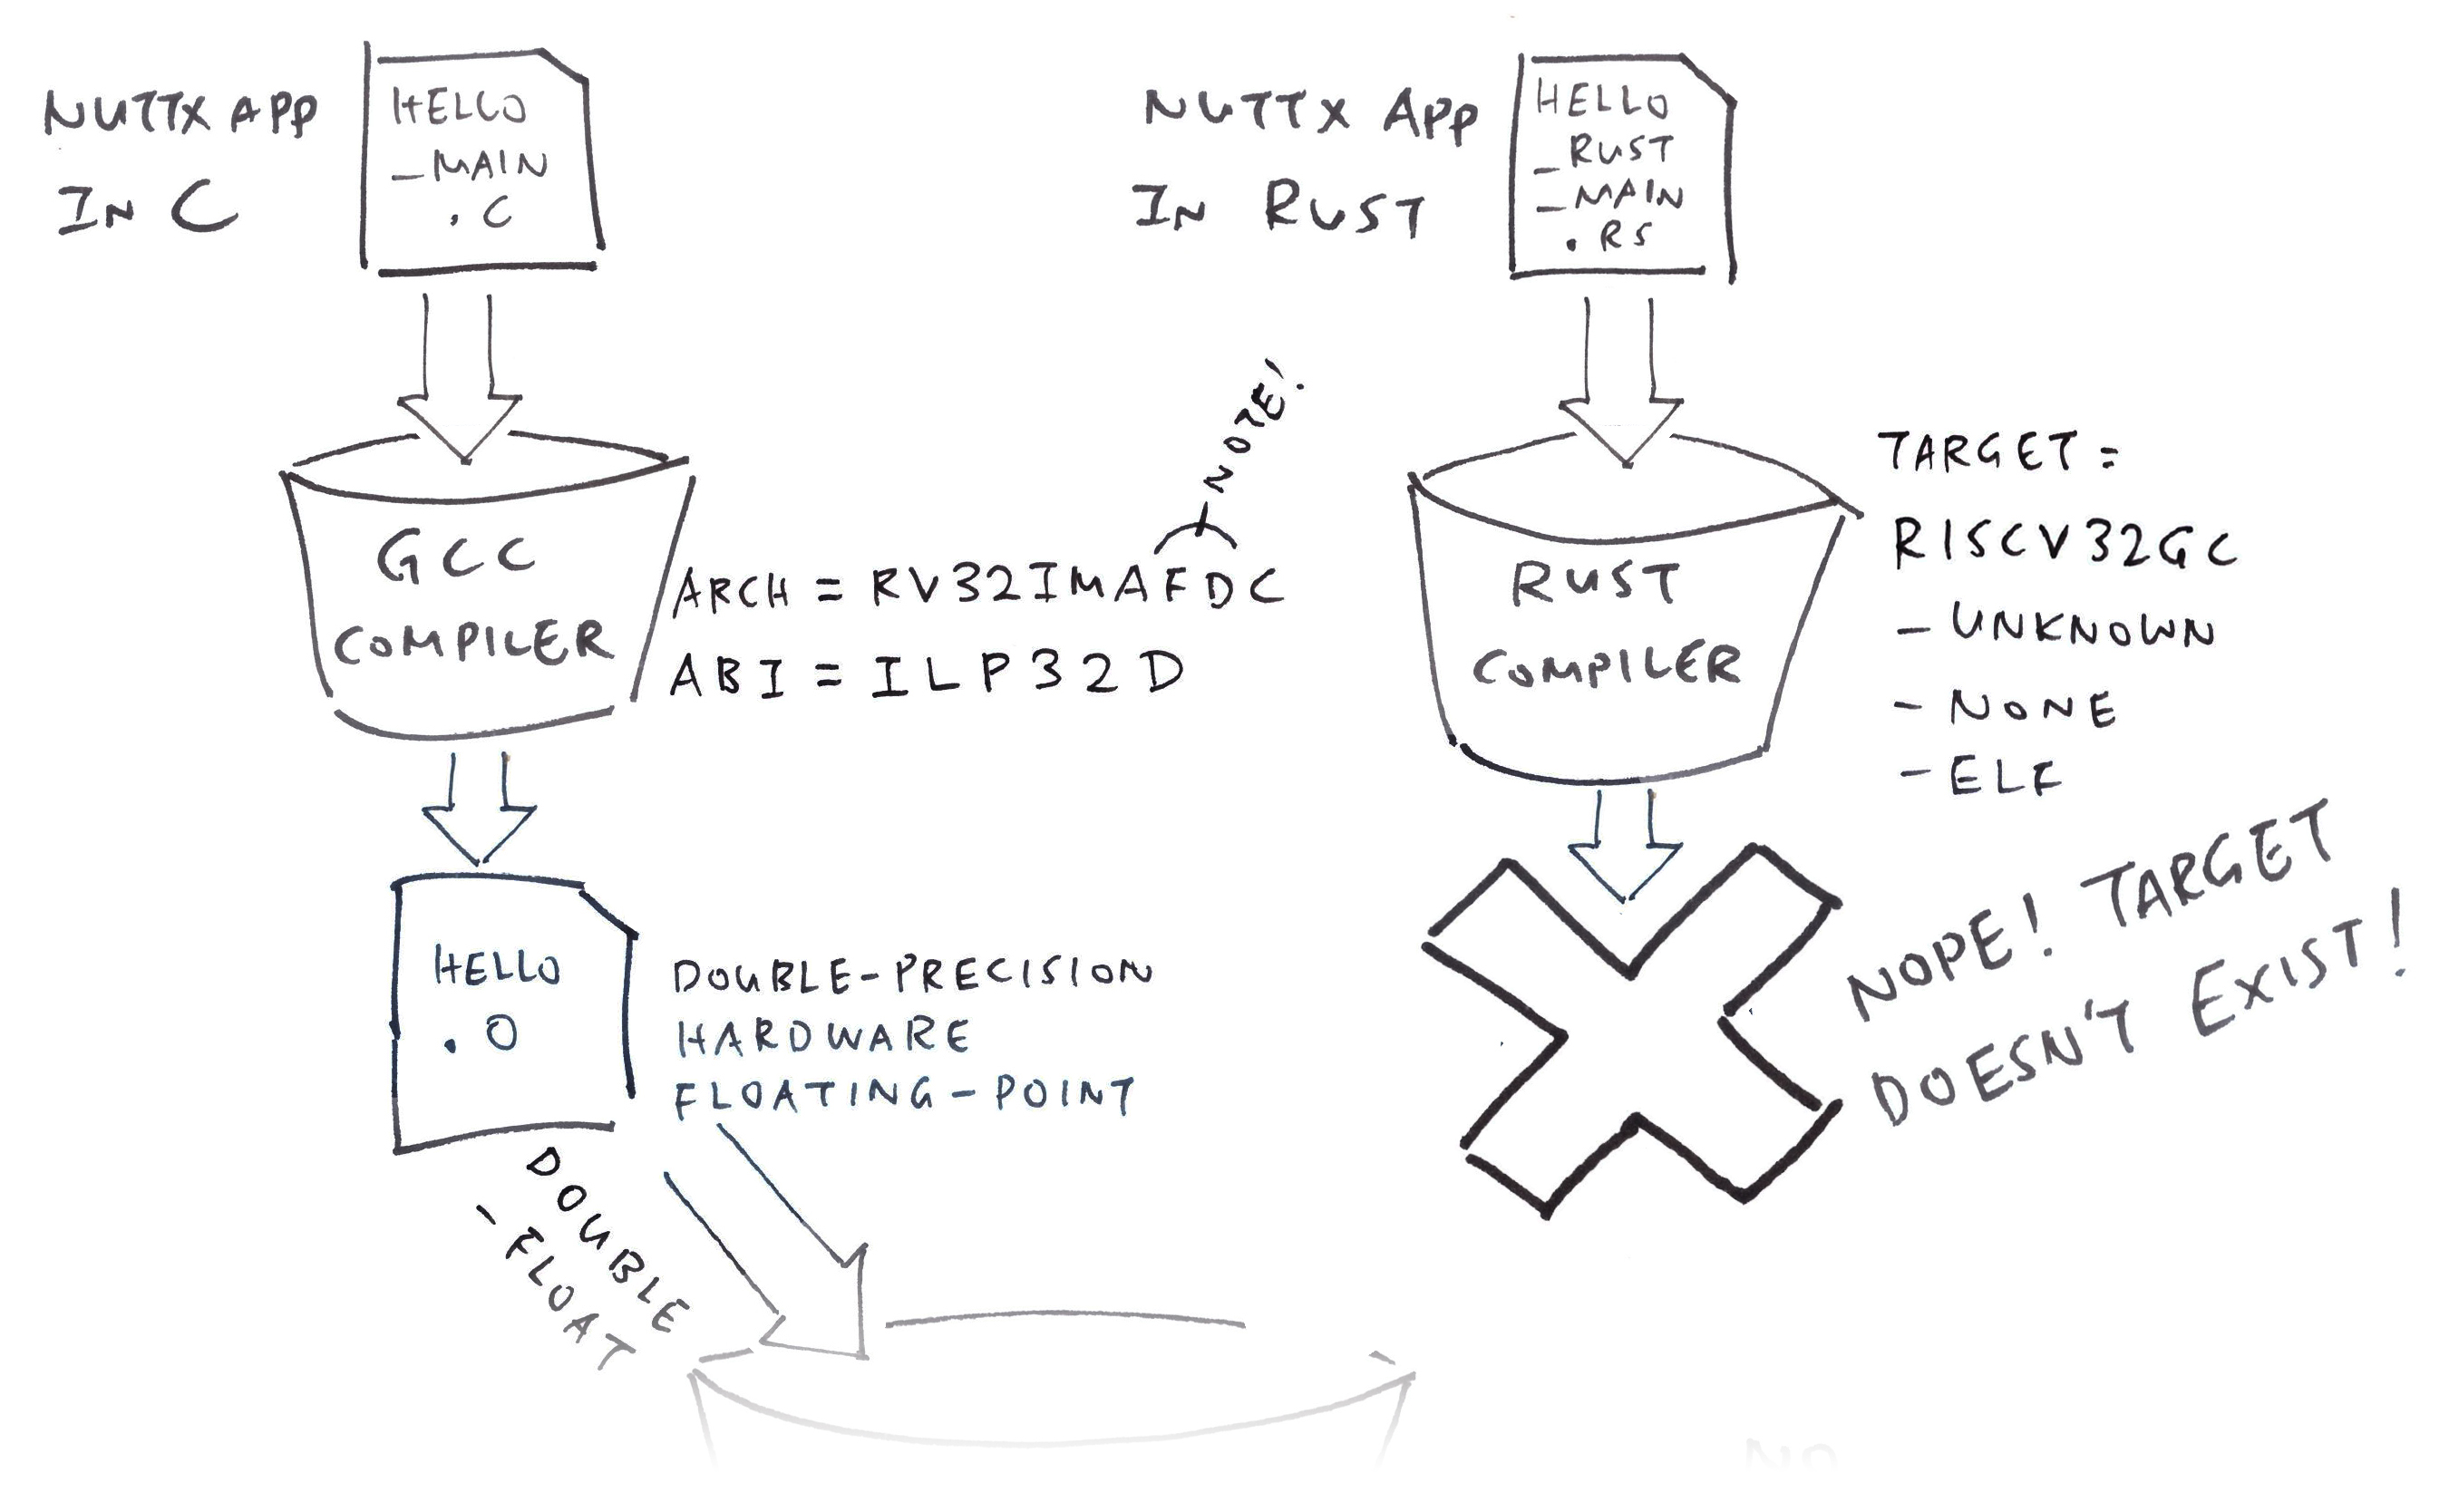 NUTTX APP
IN C
HELLO
_MAIN
.C
GCC
COMPILER
NOTE!
ARCH = RV32IMAFDC
ABI = ILP32D
HELLO
.O
DOUBLE-PRECISION
HARDWARE
FLOATING-POINT
DOUBLE
-FLOAT
NUTTX APP
IN RUST
HELLO
_RUST
_MAIN
.RS
RUST
COMPILER
TARGET =
RISCV32GC
-UNKNOWN
-NONE
-ELF
NOPE! TARGET
DOESN'T EXIST!
NO